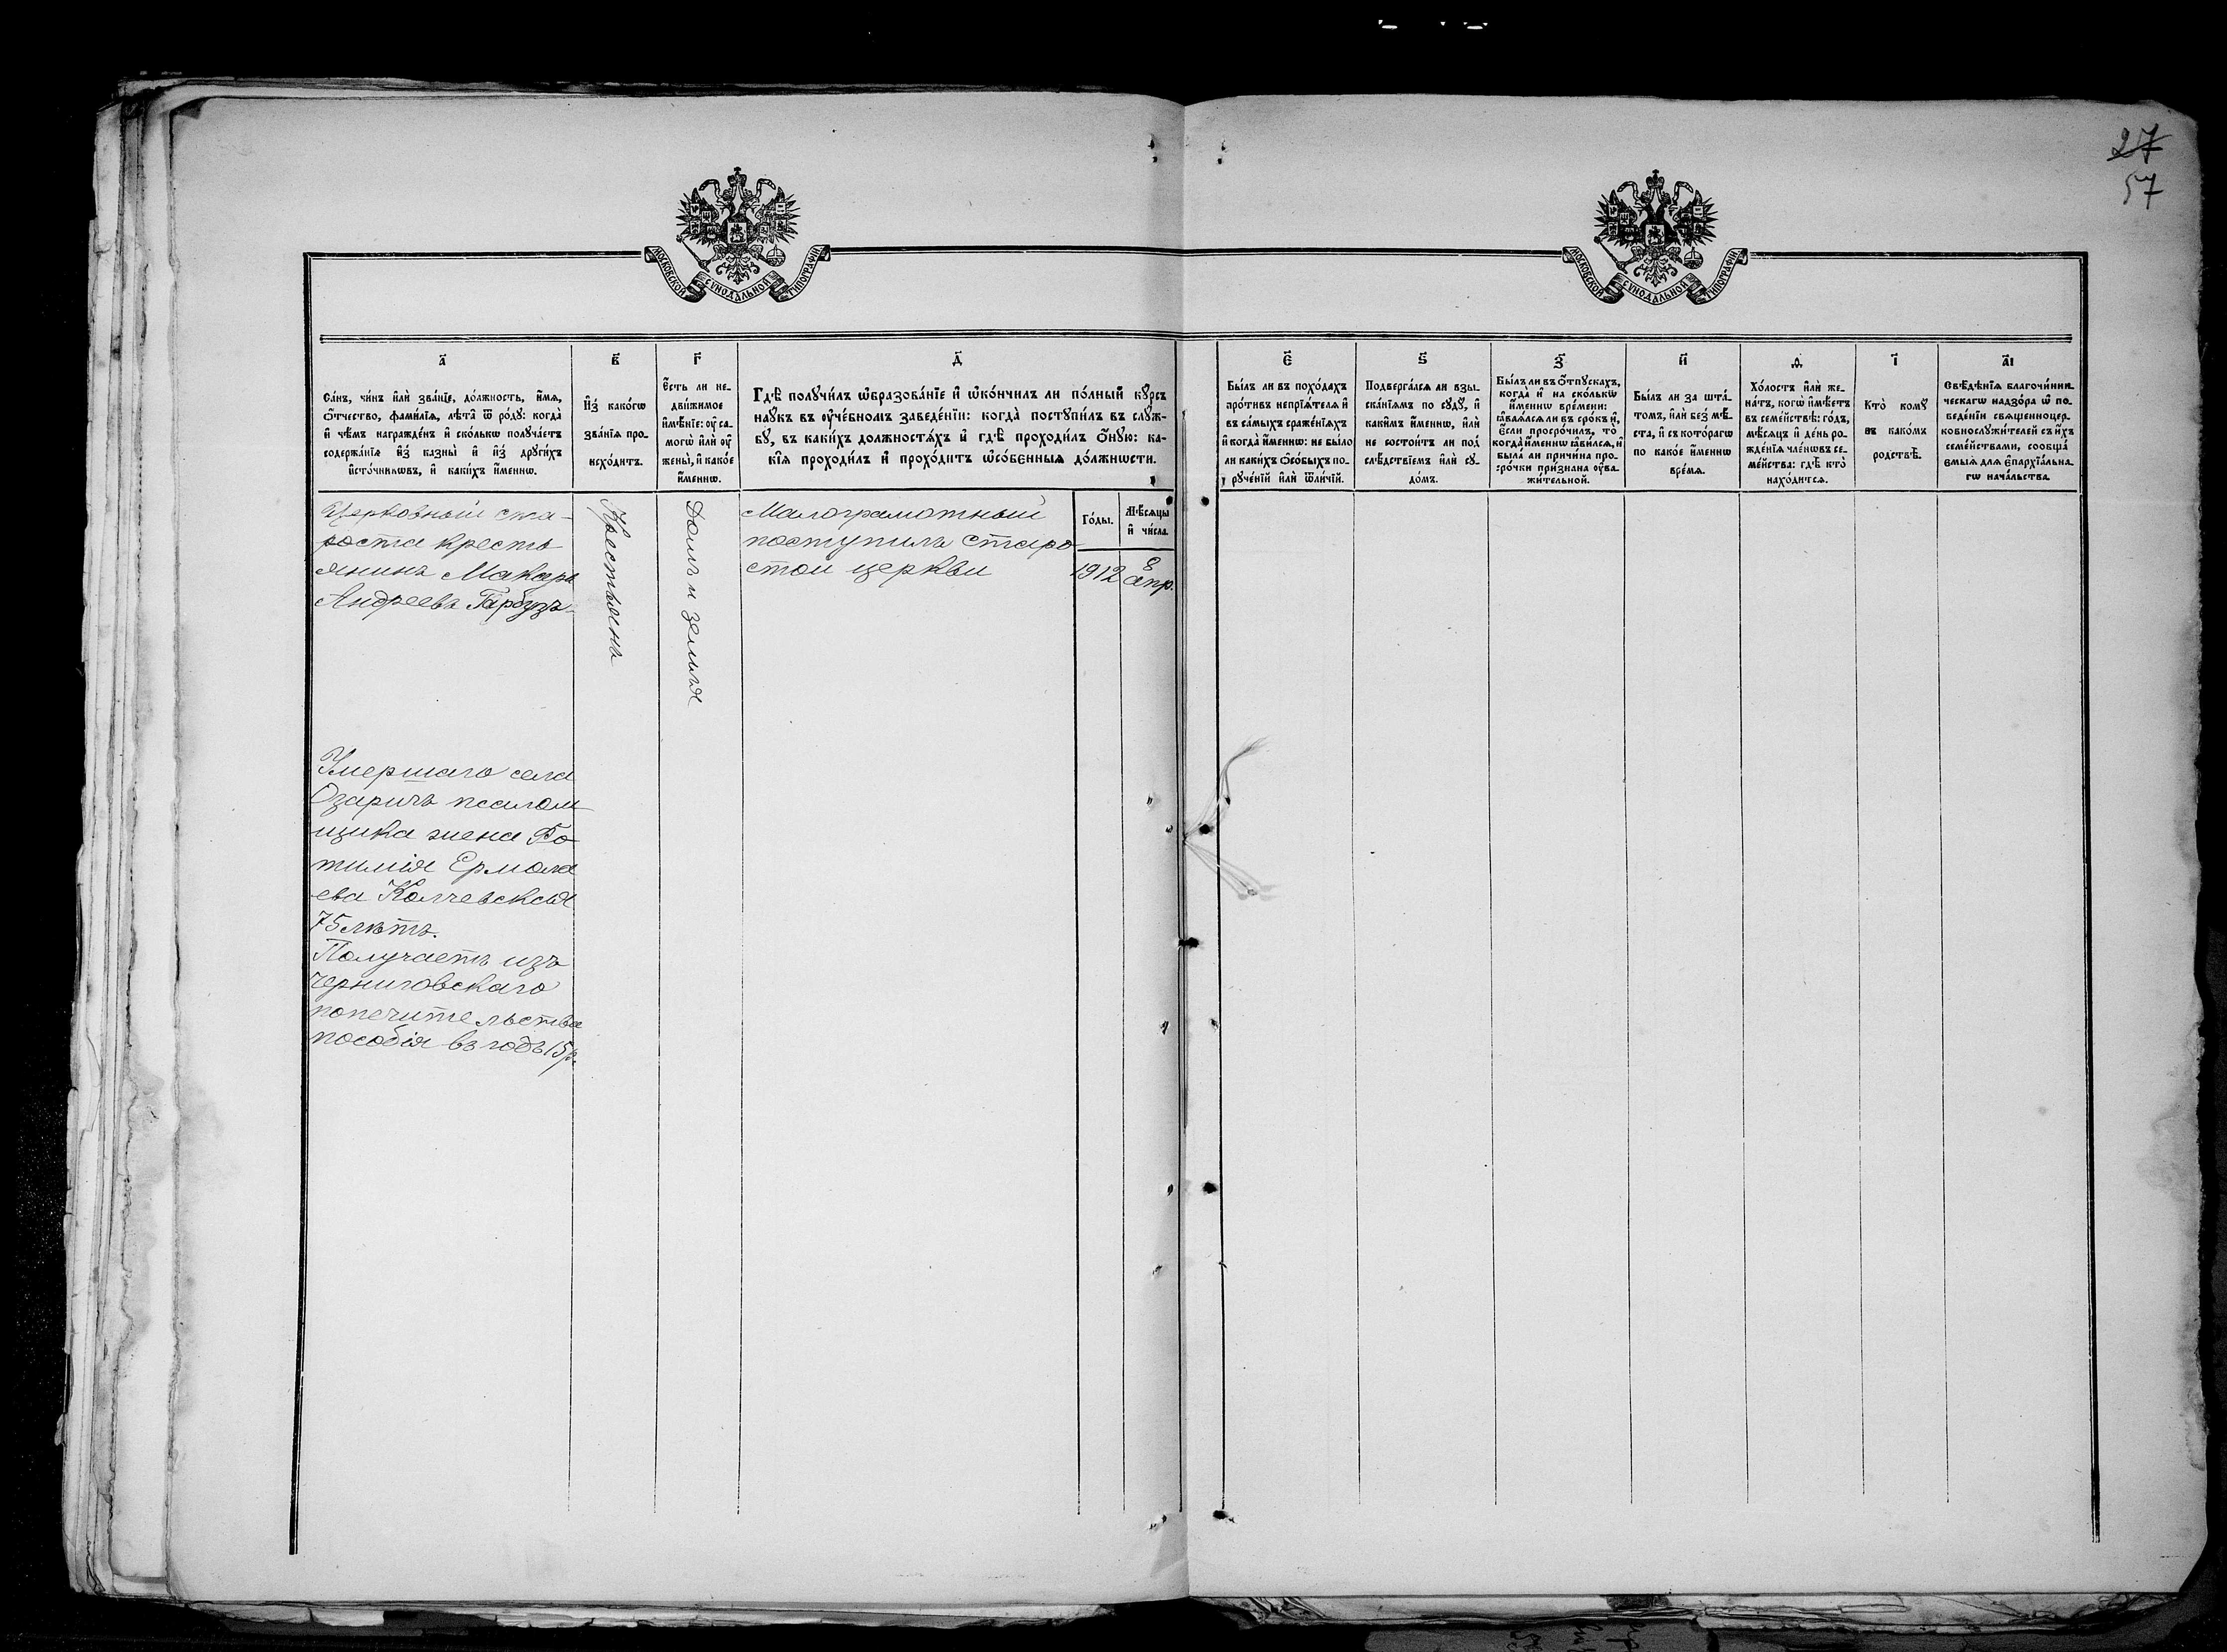 27
57
МОСКОВСКОЙ СѴНОДАЛЬНОЙ ТИПОГРАФІИ
МОСКОВСКОЙ СѴНОДАЛЬНОЙ ТИПОГРАФІИ
а҃
Са́нъ, чи́нъ и҆лѝ зва́нїе, до́лжность, и҆́мѧ,
ѻ҆́тчество, фами́лїѧ, лѣ́та ѿ ро́дꙋ: когда̀
и҆ чѣ́мъ награжде́нъ и҆ ско́лькѡ получа́етъ
содержа́нїѧ и҆з̾ казны̀ и҆ и҆з̾ дрꙋги́хъ
и҆сто́чникѡвъ, и҆ каки́хъ и҆́меннѡ.
в҃
И҆з̾ како́гѡ
зва́нїѧ про-
исхо́дитъ.
г҃
Е҆́сть ли не-
дви́жимое
и҆мѣ́нїе: ᲂу҆ са-
могѡ̀ и҆лѝ ᲂу҆
жены̀, и҆ како́е
и҆́меннѡ.
д҃
Гдѣ̀ полꙋчи́лъ ѡ҆бразова́нїе и҆ ѡ҆ко́нчилъ ли по́лный кꙋ́рсъ
наꙋ́къ въ ᲂу҆че́бномъ заведе́нїи: когда̀ постꙋпи́лъ въ слꙋ́ж-
бꙋ, въ каки́хъ должностѧ́хъ и҆ гдѣ̀ проходи́лъ ѻ҆́нꙋю: ка-
кі́ѧ проходи́лъ и҆ прохо́дитъ ѡ҆со́бенныѧ до́лжнѡсти.
є҃
Бы́лъ ли въ похо́дахъ
про́тивъ непрїѧ́телѧ и҆
въ са́мыхъ сраже́нїѧхъ
и҆ когда̀ и҆́меннѡ: не бы́ло
ли каки́хъ ѻ҆со́быхъ по-
рꙋче́нїй и҆лѝ ѿли́чїй.
ѕ҃
Подверга́лсѧ ли взы-
ска́нїѧмъ по сꙋдꙋ̀, и҆
каки́мъ и҆́меннѡ, и҆лѝ
не состои́тъ ли под̾
слѣ́дствїемъ и҆лѝ сꙋ-
до́мъ.
з҃
Бы́лъ ли въ ѻ҆́тпꙋскахъ,
когда̀ и҆ на ско́лькѡ
и҆́меннѡ вре́мени:
ꙗ҆влѧ́лсѧ ли въ сро́къ и҆,
є҆́сли просро́чилъ, то̀
когда̀ и҆́меннѡ ꙗ҆ви́лсѧ, и҆
была̀ ли причи́на про-
сро́чки при́знана ᲂу҆ва-
жи́тельной.
и҃
Бы́лъ ли за шта́-
томъ, и҆лѝ без̾ мѣ́-
ста, и҆ съ кото́рагѡ
по како́е и҆́меннѡ
вре́мѧ.
ѳ҃
Хо́лостъ и҆лѝ же-
на́тъ, когѡ̀ и҆мѣ́етъ
въ семе́йствѣ: го́дъ,
мѣ́сѧцъ и҆ де́нь ро-
жде́нїѧ чле́нѡвъ се-
ме́йства: гдѣ̀ кто̀
нахо́дитсѧ.
і҃
Кто̀ комꙋ̀
въ како́мъ
родствѣ̀.
а҃і
Свѣ́дѣнїѧ благочи́нни-
ческагѡ надзо́ра ѡ҆ по-
веде́нїи свѧщенноцер-
ковнослꙋжи́телей съ и҆́хъ
семе́йствами, сообща́-
ємыѧ для є҆пархїа́льна-
гѡ нача́льства.
Церковный ста-
роста кресть
янинъ Макарь
Андреевъ Гарбузъ.
Крестьянъ
Домъ и земля
Малограмотный
поступилъ старо
стой церкви
Го́ды.
Мѣ́сѧцы
и҆ чи́сла.
1912
8
апр.
Умершаго села
Озаричъ псалом
щика жена Фо
тилія Ермола
ева Колчевская
75 лѣтъ.
Получаетъ изъ
Черниговскаго
попечительства
пособія въ годъ 15 р.